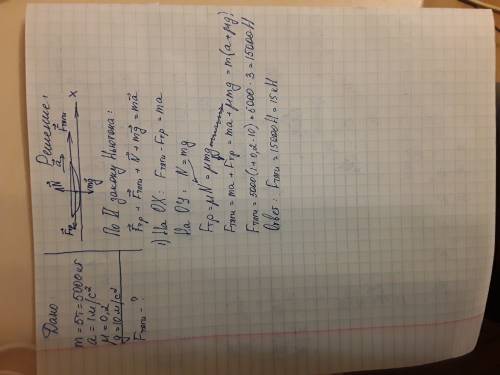 Дано
m = 5т = 5000кг
a = 1м/с²
μ = 0,2
g = 10м/с²
Fтяги - ?
Решение:
a⃗
N⃗
F⃗тяги
F⃗тр
mg⃗
x
По II закону Ньютона:
F⃗тр + F⃗тяги + N⃗ + mg⃗ = ma⃗
1) На OX: Fтяги - Fтр = ma
На OY: N = mg
Fтр = μN = μmg
Fтяги = ma + Fтр = ma + μmg = m(a + μg)
Fтяги = 5000(1 + 0,2 · 10) = 5000 · 3 = 15000Н
Ответ: Fтяги = 15000Н = 15кН